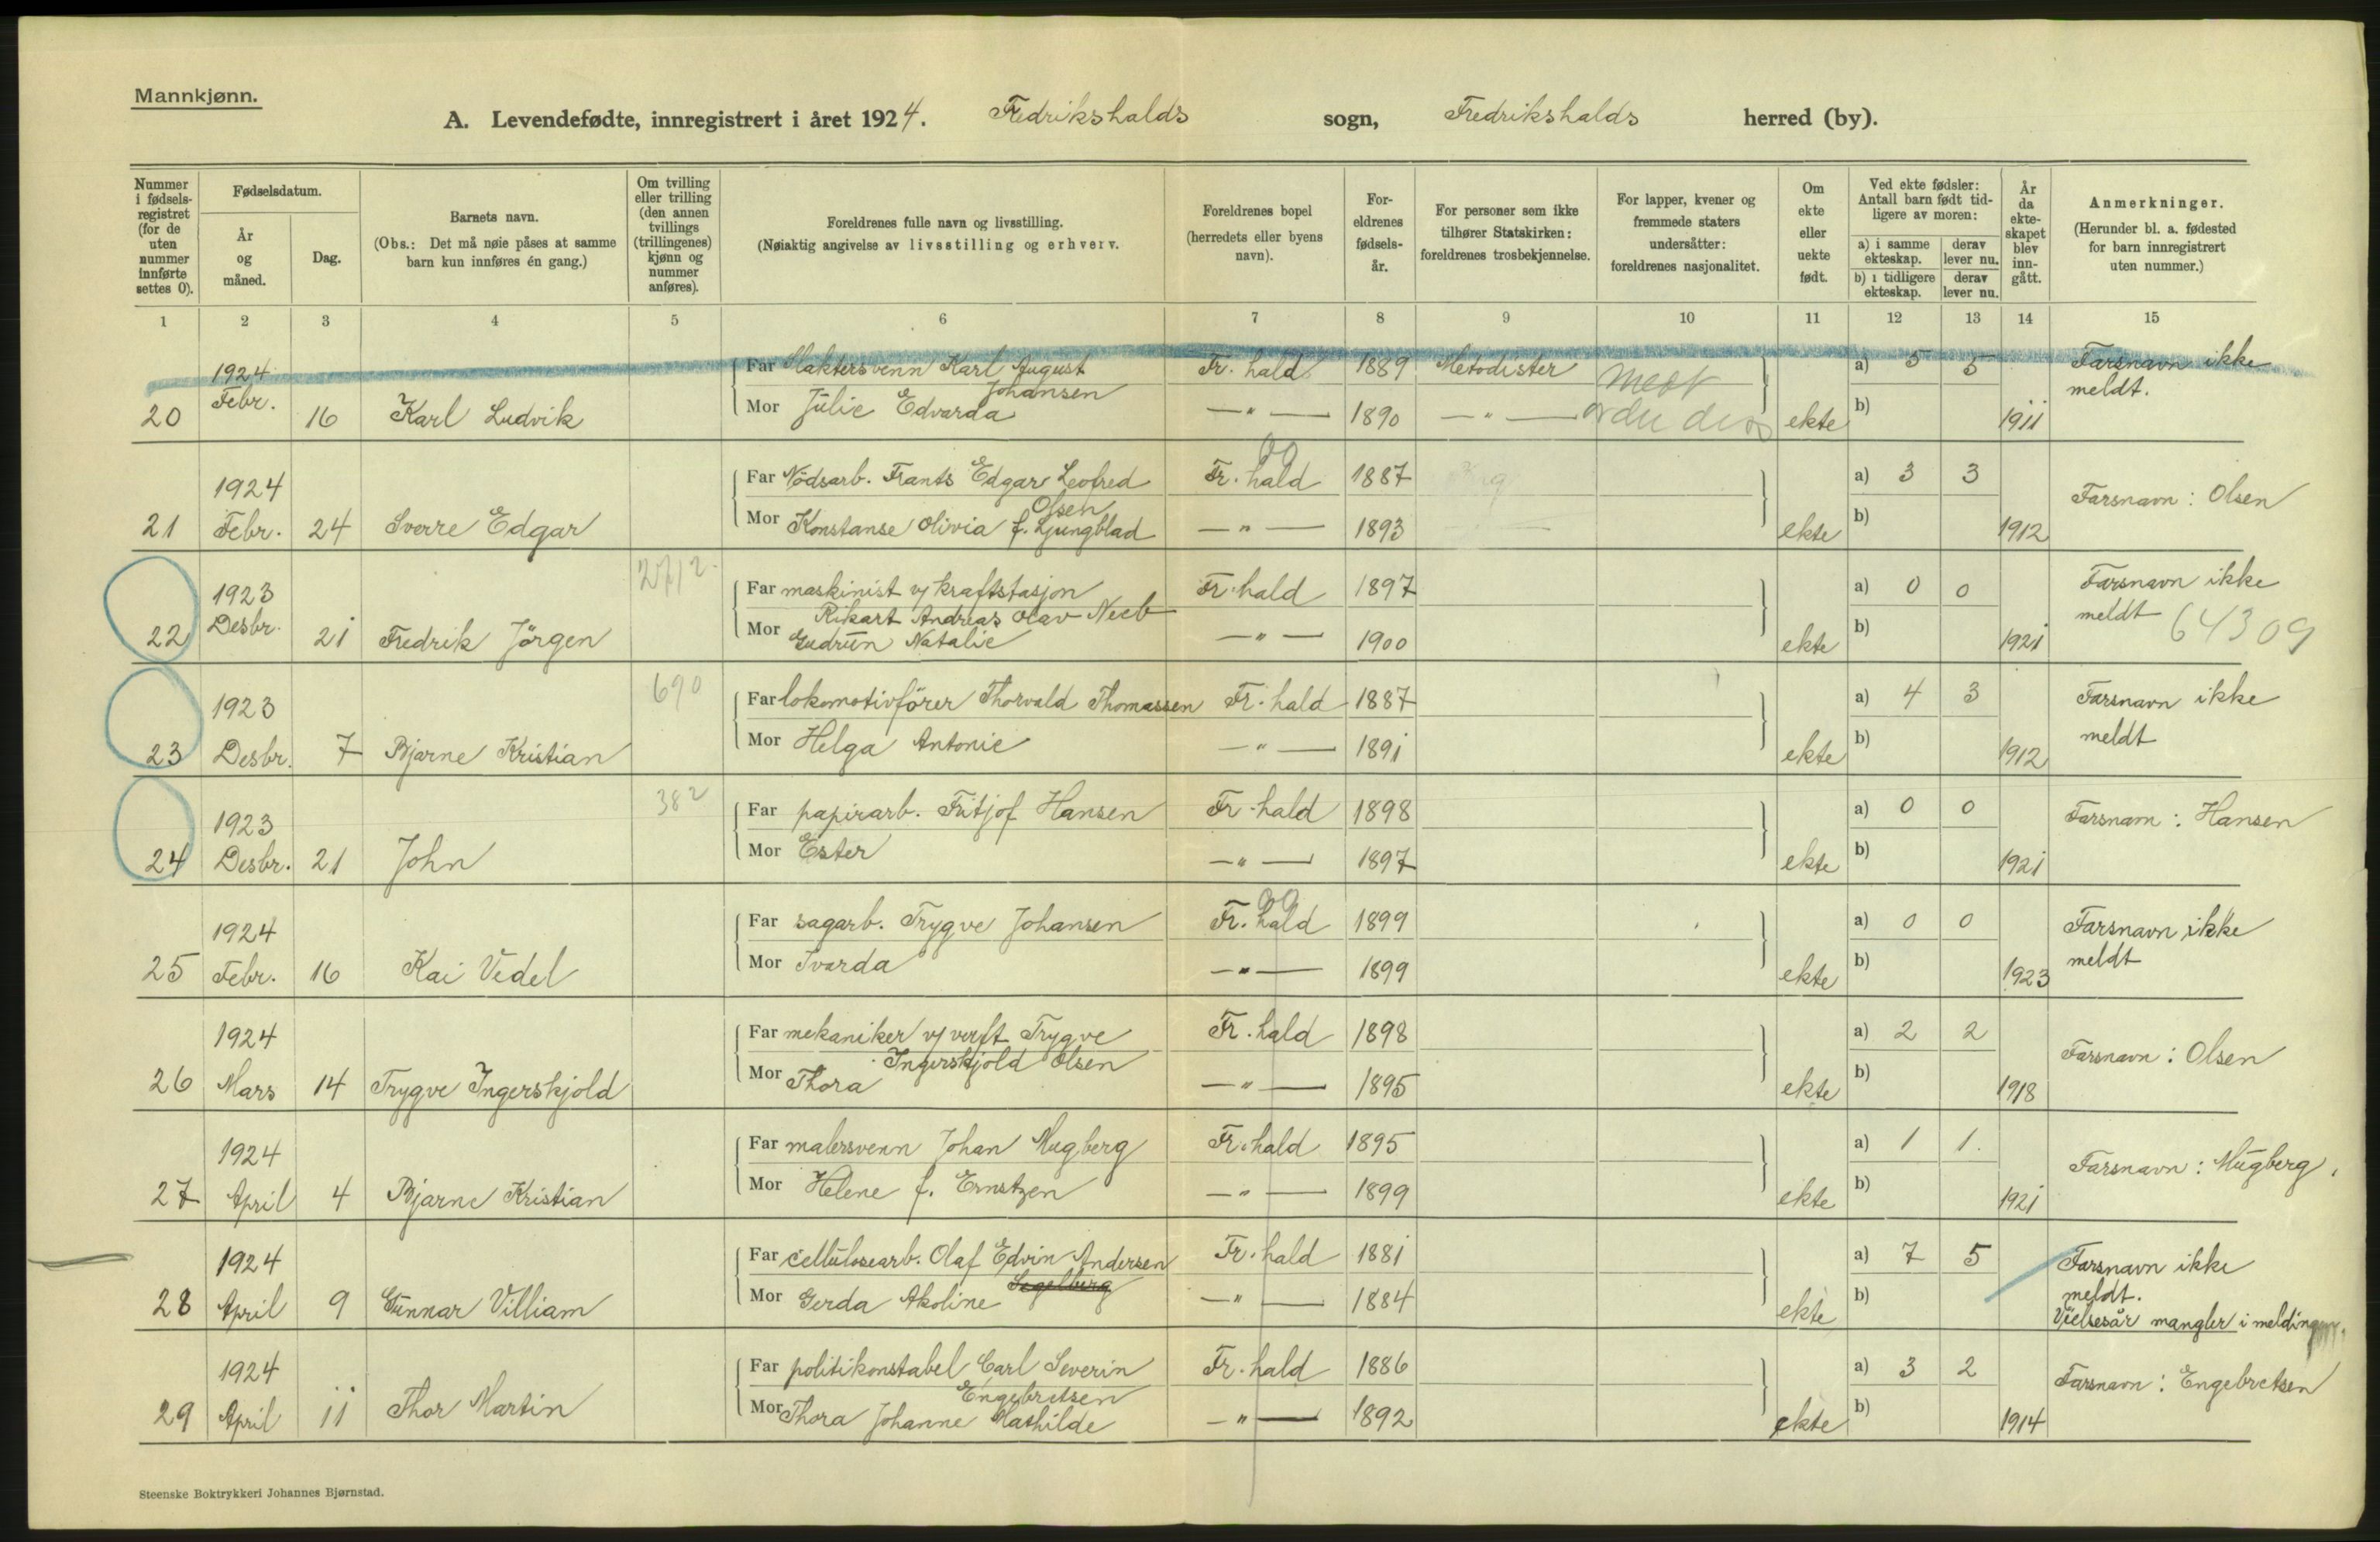 Mannkjønn.
A. Levendefødte, innregistrert i året 1924. Fredrikshalds sogn, Fredrikshalds herred (by).
Nummer i fødselsregistret (for de uten nummer innførte settes 0).
Fødselsdatum.
År og måned.
Dag.
Barnets navn.
(Obs.: Det må nøie påses at samme barn kun innføres én gang.)
Om tvilling eller trilling (den annen tvillings (trillingenes) kjønn og nummer anføres).
Foreldrenes fulle navn og livsstilling.
(Nøiaktig angivelse av livsstilling og erhverv.
Foreldrenes bopel (herredets eller byens navn).
Foreldrenes fødselsår.
For personer som ikke tilhører Statskirken: foreldrenes trosbekjennelse.
For lapper, kvener og fremmede staters undersåtter: foreldrenes nasjonalitet.
Om ekte eller uekte født.
Ved ekte fødsler: Antall barn født tidligere av moren:
a) i samme ekteskap. derav lever nu.
b) i tidligere ekteskap. derav lever nu.
År da ekteskapet blev inngått.
Anmerkninger.
(Herunder bl. a. fødested for barn innregistrert uten nummer.)
1 2 3 4 5 6 7 8 9 10 11 12 13 14 15
20 1924 Febr. 16 Karl Ludvik
Far Slaktersvenn Karl August Johansen Fr. hald 1889 Metodister a) 5 5 Farsnavn ikke meldt.
Mor Julie Edvarda —"— 1890 —"— ekte b) 1911
21 1924 Febr. 24 Sverre Edgar
Far Nödsarb. Frants Edgar Leofred Olsen Fr. hald 1887 a) 3 3 Farsnavn: Olsen
Mor Konstanse Olivia f. Ljungblad —"— 1893 ekte b) 1912
22 1923 Desbr. 21 Fredrik Jörgen
Far maskinist v/ kraftstasjon Rikart Andreas Olav Neeb Fr. hald 1897 a) 0 0 Farsnavn ikke meldt 64309
Mor Gudrun Natalie —"— 1900 ekte b) 1921
23 1923 Desbr. 7 Bjarne Kristian 690
Far lokomotivförer Thorvald Thomassen Fr. hald 1887 a) 4 3 Farsnavn ikke meldt
Mor Helga Antonie —"— 1891 ekte b) 1912
24 1923 Desbr. 21 John 382
Far papirarb. Fritjof Hansen Fr. hald 1898 a) 0 0 Farsnam: Hansen
Mor Ester —"— 1897 ekte b) 1921
25 1924 Febr. 16 Kai Vedel
Far sagarb. Trygve Johansen Fr. hald 1899 a) 0 0 Farsnavn ikke meldt
Mor Ivarda —"— 1899 ekte b) 1923
26 1924 Mars 14 Trygve Ingerskjold
Far mekaniker v/ verft Trygve Ingerskjold Olsen Fr. hald 1898 a) 2 2 Farsnavn: Olsen
Mor Thora —"— 1895 ekte b) 1918
27 1924 April 4 Bjarne Kristian
Far malersvenn Johan Mugberg Fr. hald 1895 a) 1 1. Farsnavn: Mugberg.
Mor Helene f. Ernstzen —"— 1899 ekte b) 1921
28 1924 April 9 Gunnar Villiam
Far cellulosearb. Olaf Edvin Andersen Fr. hald 1881 a) 7 5 Farsnavn ikke meldt.
Mor Gerda Akoline Segelberg —"— 1884 ekte b) Vielsesår mangler i meldingen.
29 1924 April 11 Thor Martin
Far politikonstabel Carl Severin Engebretsen Fr. hald 1886 a) 3 2 Farsnavn: Engebretsen
Mor Thora Johanne Mathilde —"— 1892 ekte b) 1914
Steenske Boktrykkeri Johannes Bjørnstad.